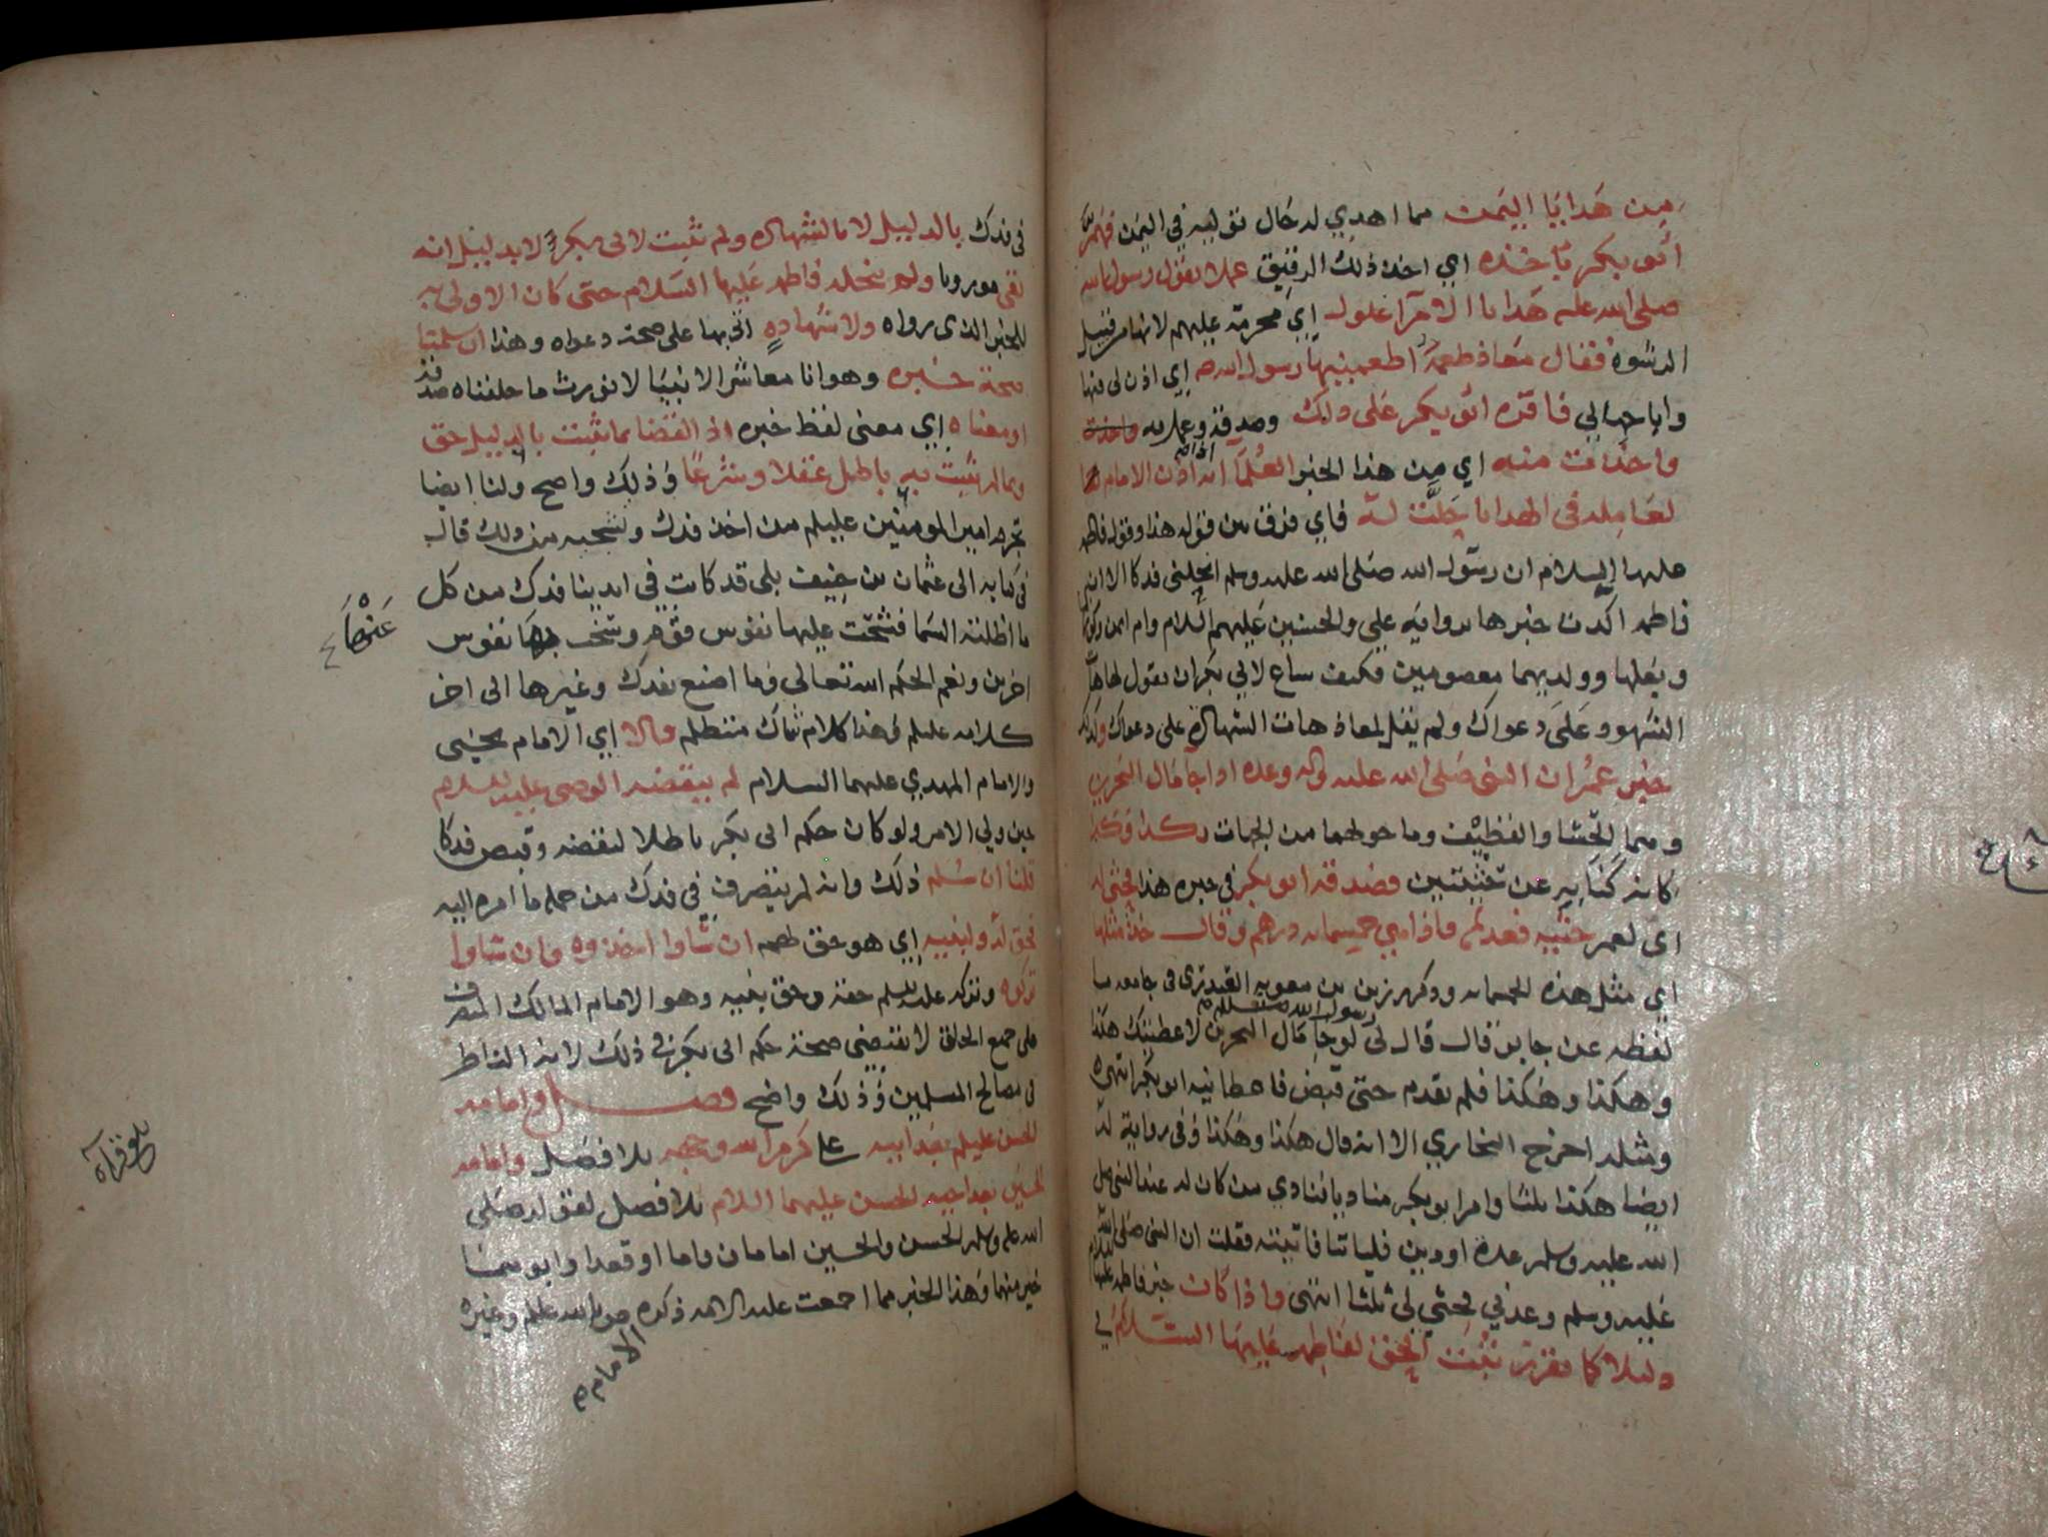 من هدايا اليمن مما اهدي له حال توليه في اليمن فهم
ابو بكر باخذه اي اخذ ذلك الرقيق عملا بقول رسول الله
صلى الله عليه هدايا الامرآ غلول اي محرمة عليهم لانها من قبيل
الرشوة فقال معاذ طعمة اطعمنيها رسول الله اي اذن لي فيها
واباحها لي فاقره ابو بكر على ذلك وصدقه وعمل به
واخذت منه اي من هذا الخبر العلمآ انه اذا اذن الامام
لعامله في الهدايا حلت له فاي فرق بين قوله هذا وقول فاطمة
عليها السلام ان رسول الله صلى الله عليه وسلم انحلني فدكا الا ان
فاطمه اكدت خبرها برواية علي والحسنين عليهم السلام وام ايمن
وبعلها وولديهما معصومين فكيف ساع لابي بكر ان يقول لها هات
الشهود على دعواك ولم يقل لمعاذ هات الشهادة على دعواك وكذلك
خبر عمر ان النبي صلى الله عليه واله وعده اذا جا مال البحرين
وهما الحسا والقطيف وما حولهما من الجهات بكذا وكذا
كانه كنايه عن حثيتين فصدقه ابو بكر في خبره هذا فحثى له
اي لعمر حثيه فعدتم فاذا هي خمسمائه درهم وقال خذ مثلها
اي مثل هذه الخمسمائه وذكر رزين بن معويه العبدري في جامعه ما
لفظه عن جابر قال قال لي رسول الله لو جا مال البحرين لاعطيتك هكذا
وهكذا وهكذا فلم يقدم حتى قبض فاعطانيه ابو بكر انتهى
ومثله اخرج البخاري الا انه قال هكذا وهكذا وفي رواية له
ايضا هكذا ثلثا وامر ابو بكر مناديا ينادي من كان له عند النبي صلى
الله عليه وسلم عدة او دين فلياتنا فاتيته فقلت ان النبي صلى الله
عليه وسلم وعدني فحثى لي ثلثا انتهى واذا كان خبر فاطمه عليها السلام
دليلا كما تقرر ثبت الحق لفاطمه عليها السلام
في فدك بالدليل لا بالشهاده ولم يثبت لابي بكر الا بدليل انه
بقي موروثا ولم ينحله فاطمه عليها السلام حتى كان الاولى به
للخبر الذي رواه ولا شهاده اتى بها على صحة دعواه وهذا ان سلمنا
صحة خبره وهو انا معاشر الانبيا لا نورث ما خلفناه صدقه
او معناه اي معنى لفظ خبره اذ القضا بما يثبت بالدليل حق
وبما لم يثبت به باطل عقلا وشرعا وذلك واضح ولنا ايضا
تجرم امير المومنين عليلم من اخذ فدك وتعجبه من ذلك قال
في كتابه الى عثمان بن حنيف بلى قد كانت في ايدينا فدك من كل
ما اظلته السما فشحت عليها نفوس قوم وسخت عنها نفوس
اخرين ونعم الحكم الله تعالى وما اصنع بفدك وغيرها الى اخر
كلامه عليلم وهذا كلام شاك متظلم قالا اي الامام يحيى
والامام المهدي عليهما السلام لم ينقضه الوصي عليه السلام
حين ولي الامر ولو كان حكم ابي بكر باطلا لنقضه وقبض فدكا
قلنا ان سلم ذلك وانه لم يتصرف في فدك من جملة ما امره اليه
فحق له ولبنيه اي هو حق لهم ان شاوا اخذوه وان شاوا
تركوه وتركه عليلم حقه وحق بنيه وهو الامام المالك التصرف
على جميع الخلق لا يقتضي صحة حكم ابي بكر في ذلك لانه الناظر
في مصالح المسلمين وذلك واضح فصل وامامه
الحسن عليلم بعد ابيه علي كرم الله وجهه بلا فصل وامامه
الحسين بعد اخيه الحسن عليهما السلام بلا فصل لقوله صلى
الله عليه وسلم الحسن والحسين امامان قاما او قعدا وابوهما
خير منهما وهذا الخبر مما اجمعت عليه الامه ذكره عليلم وغيره
الامام م
بلغ قراة